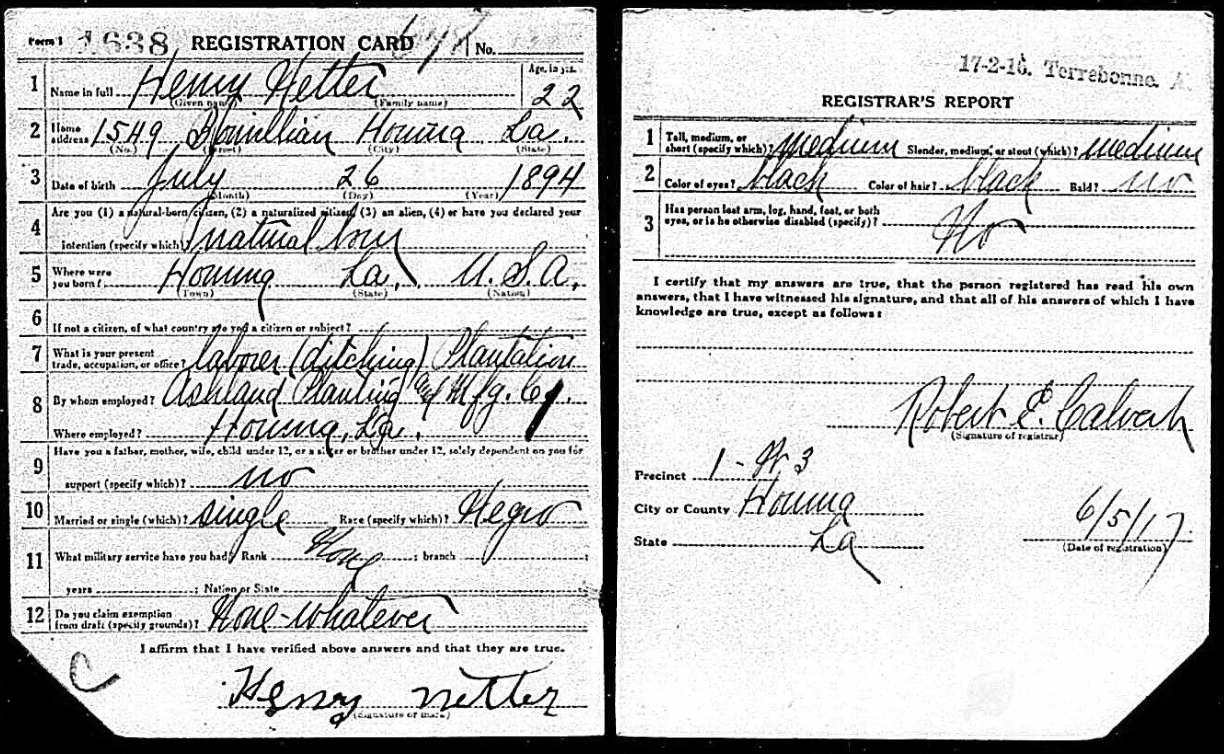 Form 1 1638 REGISTRATION CARD No.
1 Name in full Henry Netter Age, in yrs. 22
(Given name) (Family name)
2 Home address 1549 Houma La.
(No.) (Street) (City) (State)
3 Date of birth July 26 1894
(Month) (Day) (Year)
4 Are you (1) a natural-born citizen, (2) a naturalized citizen, (3) an alien, (4) or have you declared your
intention (specify which)? natural born
5 Where were you born? Houma La. U.S.A.
(Town) (State) (Nation)
6 If not a citizen, of what country are you a citizen or subject?
7 What is your present trade, occupation, or office? laborer (ditching) Plantation
8 By whom employed? Ashland Planting and Mfg. Co.
Where employed? Houma, La.
9 Have you a father, mother, wife, child under 12, or a sister or brother under 12, solely dependent on you for
support (specify which)? no
10 Married or single (which)? single Race (specify which)? Negro
11 What military service have you had? Rank None ; branch ;
years ; Nation or State
12 Do you claim exemption from draft (specify grounds)? None-whatever
I affirm that I have verified above answers and that they are true.
Henry Netter
(Signature or mark)
C
17-2-16. Terrebonne. A.
REGISTRAR'S REPORT
1 Tall, medium, or short (specify which)? medium Slender, medium, or stout (which)? medium
2 Color of eyes? black Color of hair? black Bald? no
3 Has person lost arm, leg, hand, foot, or both eyes, or is he otherwise disabled (specify)? No
I certify that my answers are true, that the person registered has read his own
answers, that I have witnessed his signature, and that all of his answers of which I have
knowledge are true, except as follows:
Robert E. Calvert
(Signature of registrar)
Precinct 1 - W 3
City or County Houma
State La
6/5/17
(Date of registration)